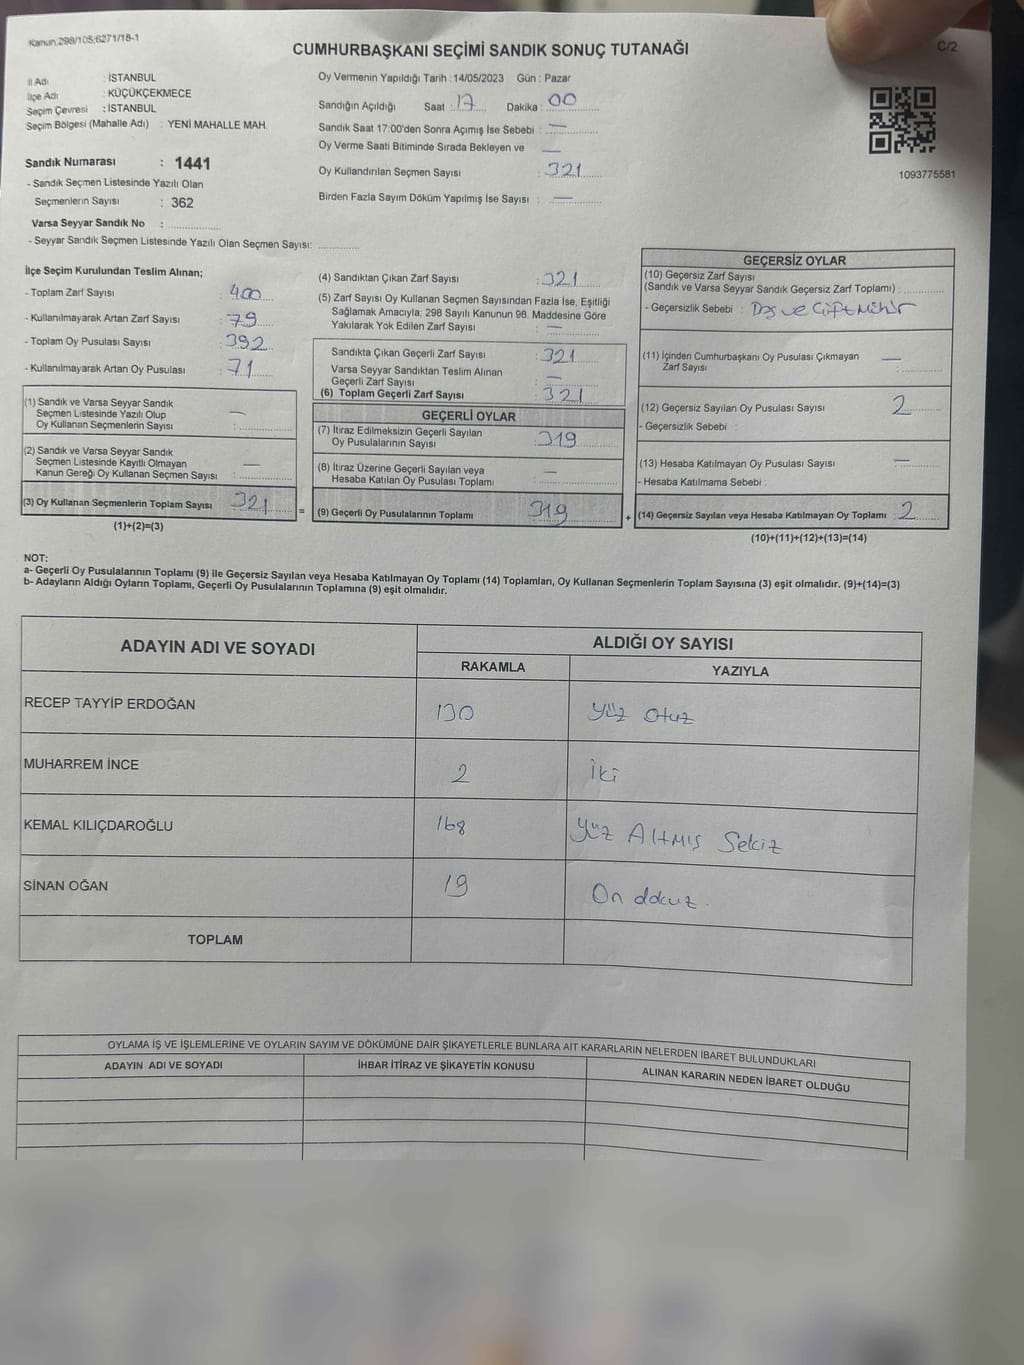 Kanun,298/105;6271/18-1
C/2
CUMHURBAŞKANI SEÇİMİ SANDIK SONUÇ TUTANAĞI
İl Adı : İSTANBUL
İlçe Adı : KÜÇÜKÇEKMECE
Seçim Çevresi : İSTANBUL
Seçim Bölgesi (Mahalle Adı) : YENİ MAHALLE MAH.
Sandık Numarası : 1441
- Sandık Seçmen Listesinde Yazılı Olan
Seçmenlerin Sayısı : 362
Varsa Seyyar Sandık No :
- Seyyar Sandık Seçmen Listesinde Yazılı Olan Seçmen Sayısı:
Oy Vermenin Yapıldığı Tarih : 14/05/2023 Gün : Pazar
Sandığın Açıldığı Saat : 17 Dakika : 00
Sandık Saat 17:00'den Sonra Açımış İse Sebebi : —
Oy Verme Saati Bitiminde Sırada Bekleyen ve —
Oy Kullandırılan Seçmen Sayısı : 321
Birden Fazla Sayım Döküm Yapılmış İse Sayısı : —
1093775581
İlçe Seçim Kurulundan Teslim Alınan;
- Toplam Zarf Sayısı : 400
- Kullanılmayarak Artan Zarf Sayısı : 79
- Toplam Oy Pusulası Sayısı : 392
- Kullanılmayarak Artan Oy Pusulası : 71
(1) Sandık ve Varsa Seyyar Sandık
Seçmen Listesinde Yazılı Olup
Oy Kullanan Seçmenlerin Sayısı : —
(2) Sandık ve Varsa Seyyar Sandık
Seçmen Listesinde Kayıtlı Olmayan
Kanun Gereği Oy Kullanan Seçmen Sayısı : —
(3) Oy Kullanan Seçmenlerin Toplam Sayısı 321
(1)+(2)=(3)
=
(4) Sandıktan Çıkan Zarf Sayısı : 321
(5) Zarf Sayısı Oy Kullanan Seçmen Sayısından Fazla İse, Eşitliği
Sağlamak Amacıyla; 298 Sayılı Kanunun 98. Maddesine Göre
Yakılarak Yok Edilen Zarf Sayısı : —
Sandıkta Çıkan Geçerli Zarf Sayısı : 321
Varsa Seyyar Sandıktan Teslim Alınan
Geçerli Zarf Sayısı : —
(6) Toplam Geçerli Zarf Sayısı : 321
GEÇERLİ OYLAR
(7) İtiraz Edilmeksizin Geçerli Sayılan
Oy Pusulalarının Sayısı : 319
(8) İtiraz Üzerine Geçerli Sayılan veya
Hesaba Katılan Oy Pusulası Toplamı : —
(9) Geçerli Oy Pusulalarının Toplamı 319
+
GEÇERSİZ OYLAR
(10) Geçersiz Zarf Sayısı
(Sandık ve Varsa Seyyar Sandık Geçersiz Zarf Toplamı) :
- Geçersizlik Sebebi : Boş ve Çift Mühür
(11) İçinden Cumhurbaşkanı Oy Pusulası Çıkmayan —
Zarf Sayısı :
(12) Geçersiz Sayılan Oy Pusulası Sayısı : 2
- Geçersizlik Sebebi :
(13) Hesaba Katılmayan Oy Pusulası Sayısı : —
- Hesaba Katılmama Sebebi :
(14) Geçersiz Sayılan veya Hesaba Katılmayan Oy Toplamı : 2
(10)+(11)+(12)+(13)=(14)
NOT:
a- Geçerli Oy Pusulalarının Toplamı (9) ile Geçersiz Sayılan veya Hesaba Katılmayan Oy Toplamı (14) Toplamları, Oy Kullanan Seçmenlerin Toplam Sayısına (3) eşit olmalıdır. (9)+(14)=(3)
b- Adayların Aldığı Oyların Toplamı, Geçerli Oy Pusulalarının Toplamına (9) eşit olmalıdır.
ADAYIN ADI VE SOYADI ALDIĞI OY SAYISI
RAKAMLA YAZIYLA
RECEP TAYYİP ERDOĞAN 130 Yüz Otuz
MUHARREM İNCE 2 İki
KEMAL KILIÇDAROĞLU 168 Yüz Altmış Sekiz
SİNAN OĞAN 19 On dokuz.
TOPLAM
OYLAMA İŞ VE İŞLEMLERİNE VE OYLARIN SAYIM VE DÖKÜMÜNE DAİR ŞİKAYETLERLE BUNLARA AİT KARARLARIN NELERDEN İBARET BULUNDUKLARI
ADAYIN ADI VE SOYADI İHBAR İTİRAZ VE ŞİKAYETİN KONUSU ALINAN KARARIN NEDEN İBARET OLDUĞU